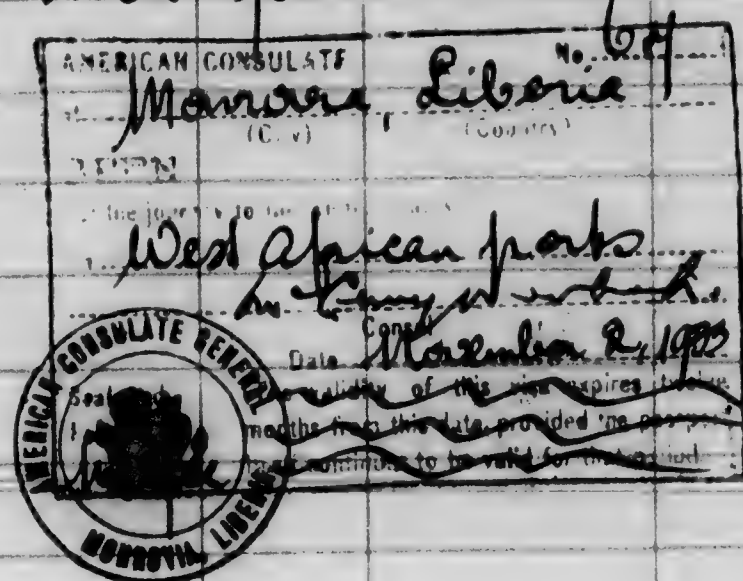 AMERICAN CONSULATE No.
Monrovia, Liberia
(City) (Country)
West African ports
Consul
Date November 2, 1933
Seal
validity of this visa expires twelve
months from this date, provided the passport
continues to be valid for that period
AMERICAN CONSULATE GENERAL
MONROVIA, LIBERIA